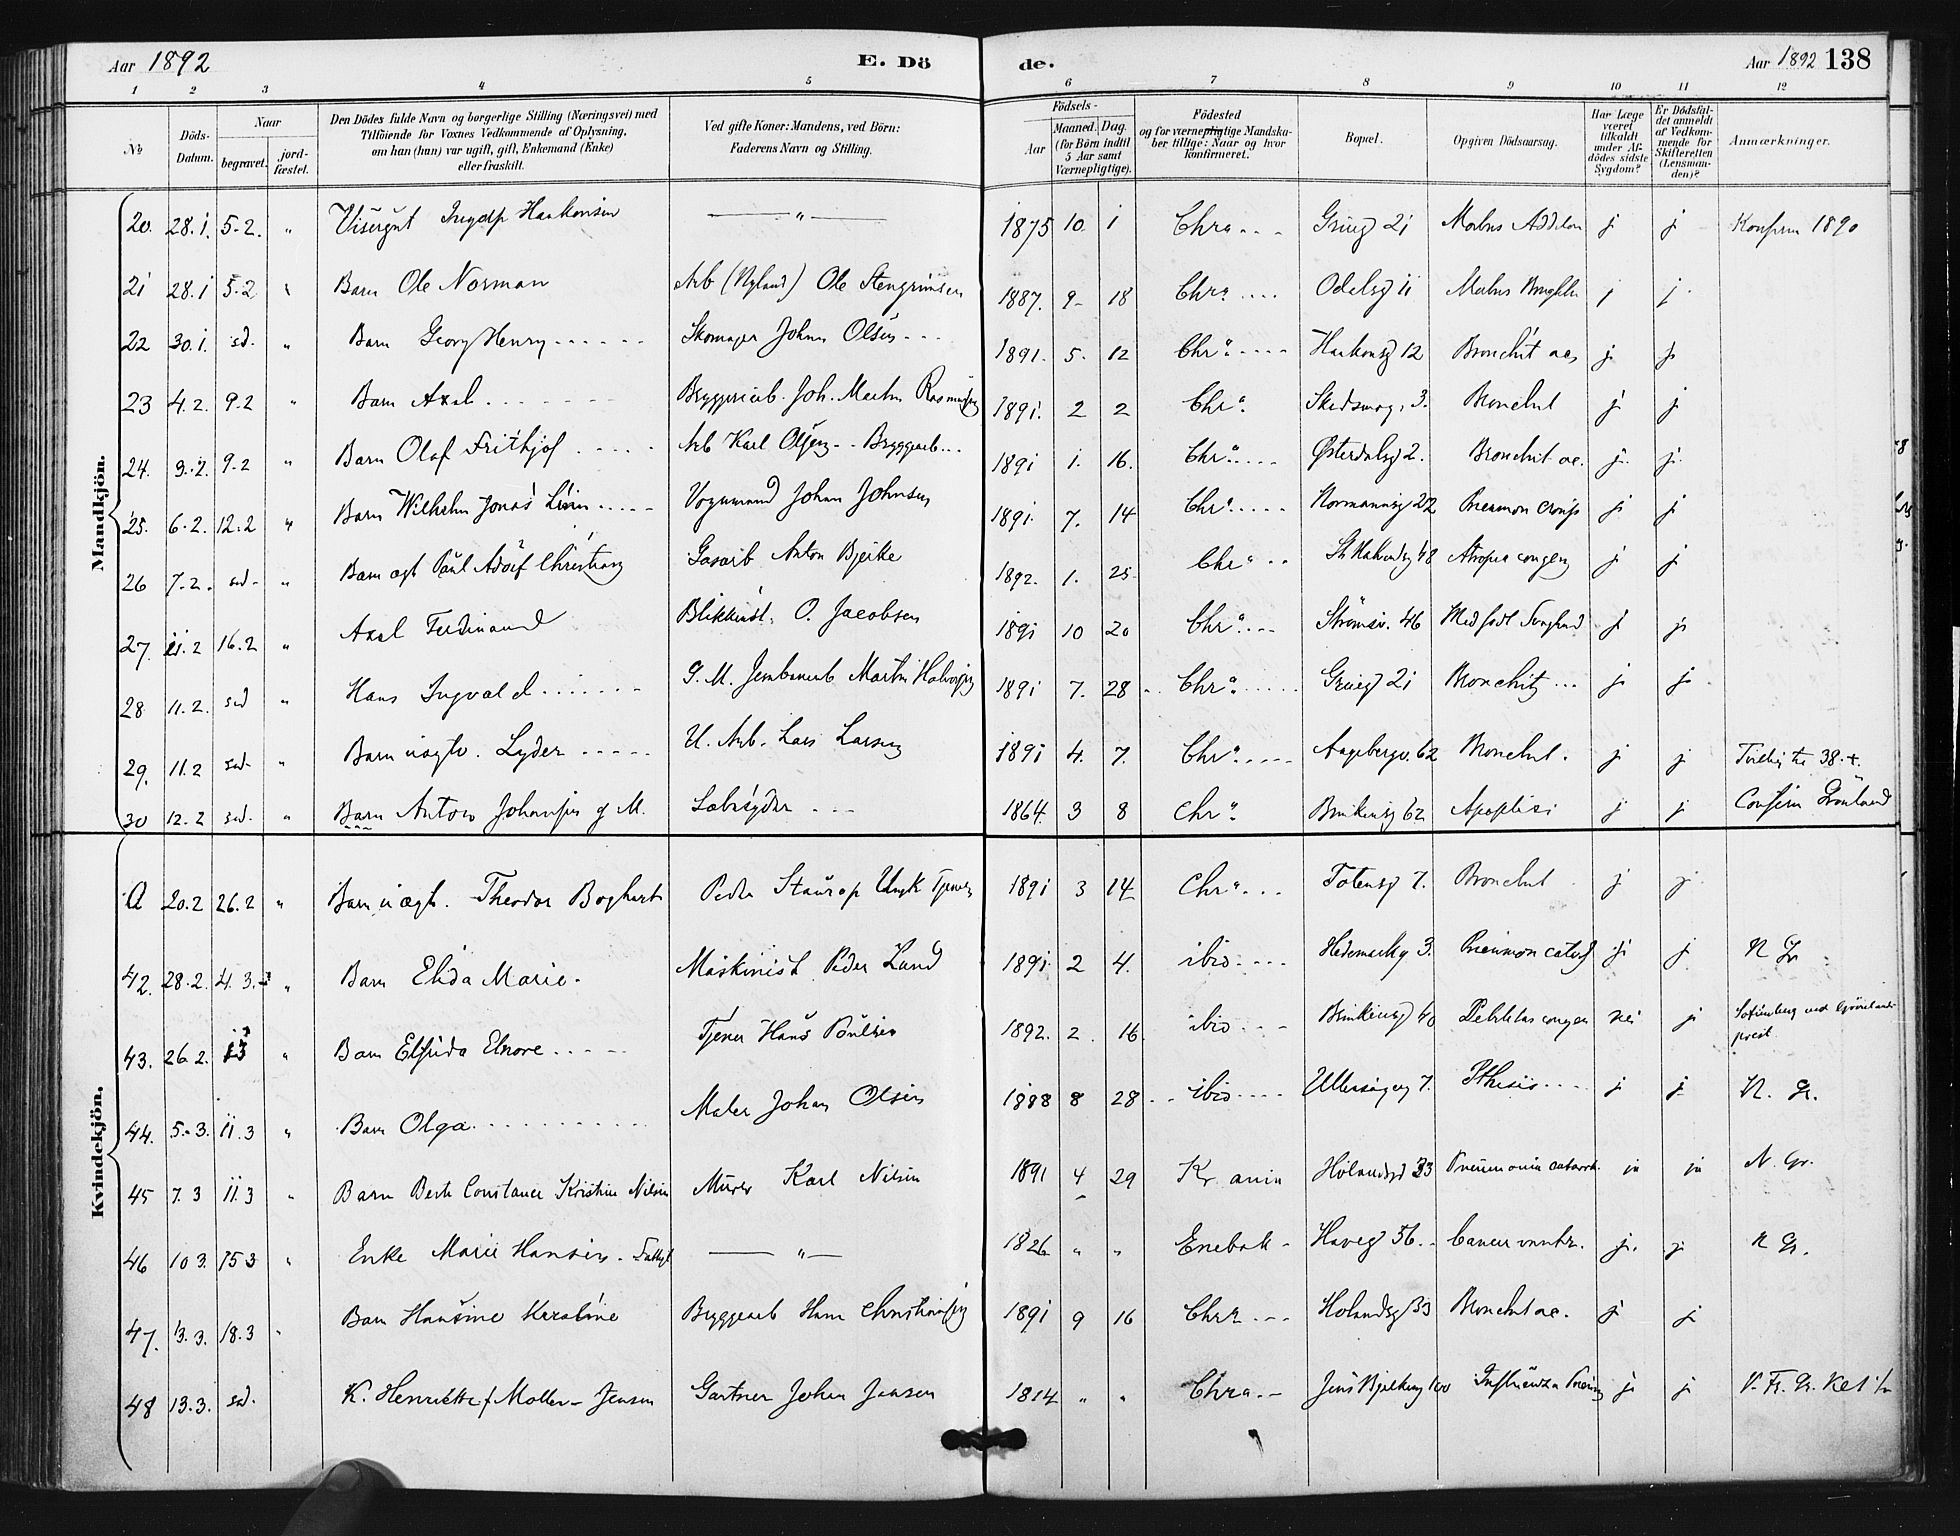 Aar 1892 E. Dö de. Aar 1892 138
1 2 3 4 5 6 7 8 9 10 11 12
№ Döds-Datum. Naar begravet. jordfæstet. Den Dödes fulde Navn og borgerlige Stilling (Næringsvei) med Tilföiende for Voxnes Vedkommende af Oplysning, om han (hun) var ugift, gift, Enkemand (Enke) eller fraskilt. Ved gifte Koner: Mandens, ved Börn: Faderens Navn og Stilling. Födsels- Aar Maaned. Dag. (for Börn indtil 5 Aar samt Værnepligtige). Födested og for værnepligtige Mandskaber tillige: Naar og hvor konfirmeret. Bopæl. Opgiven Dödsaarsag. Har Læge været tilkaldt under Afdödes sidste Sygdom? Er Dödsfaldet anmeldt af Vedkommende for Skifteretten (Lensmanden)? Anmærkninger.
Mandkjön.
20. 28.1. 5-2. " Visergut Haakonsen — " — 1875 10. 1 Chra Grüeg 21 Morbus Addison j j Konfirm 1890
21 28.1 5-2 " Barn Ole Norman Arb (Nyland) Ole Stengrimsen 1887. 9- 18 Chra Odelsg 11 Morbus j j
22 30.1. sd. " Barn Georg Henry Skomager Johan Olsen 1891. 5. 12 Chra Haakonsg 12 Bronchit ac. j j
23 4.2. 9.2 " Barn Axel Bryggeriarb. Joh. Martin Rasmussen 1891. 2 2 Chra. Skedsmog. 3. Bronchit j j
24. 9.2. 9-2 " Barn Olaf Frithjof Arb Karl Olsen - Bryggearb 1891 1. 16. Chra Østerdalsg 2. Bronchit ac. j. j.
25. 6.2. 12.2 " Barn Wilhelm Jonas Vognmand Johan Johnsen 1891. 7. 14 Chra Normannsg 22 Pneumon croup j j
26 7.2. sd. " Barn ægt Paul Adolf Christian Gasarb Anton Bjerke 1892. 1. 25. Chra St Halvardsg 48 Atrofia congen j j
27. 11.2 16.2 " Axel Ferdinand O. Jacobsen 1891 10 20 Chra Strömsv. 46 Medfödt Svaghed j j
28 11.2. sd " Hans Ingvald G. M. Jernbanearb Martin Halvorsen 1891 7. 28 Chra Grüeg 21 Bronchit j j
29. 11.2 sd. " Barn uægte. Lyder U. Arb. Lars Larsen 1891 4. 7. Chra Aagebergv. 62 Bronchit. j j 38.
30 12.2 sd. " Barn Anton Johansen g M. 1864. 3 8 Chra Brinkensg 62 Apoplexi j j Confirm Grönland
Kvindekjön.
20.2 26.2 " Barn uægt. Theodor Peder Staurop 1891 3 14 Chra Totensg 7. Bronchit j j
42. 28.2. 4.3. " Barn Elida Marie. Maskinist Peder Lund 1891. 2 4. ibid Hedemarksg 3. Pneumon catarrh j j N Gr
43. 26.2. " Barn Elfrida Elnore Tjener Hans Poulsen 1892. 2. 16. ibid Brinkensg 40 Debilitas congen nei j ved Grönlands prest
44. 5.3. 11.3 " Barn Olga Maler Johan Olsen 1888 8 28 ibid 7. Phthisis j j N. Gr.
45 7.3 11.3 " Barn Berte Constance Kristine Nilsen Murer Karl Nilsen 1891 4 29 Kr.ania Hølandsgd 33 Pneumonia catarrh. ja ja N. Gr.
46 10 3. 15 3 " Enke Marie Hansen — " — 1826 " " Enebak Haveg 56. Cancer ventr. j. j N Gr.
47. 13.3. 18.3 " Barn Hansine Karoline Bryggearb Hans Christiansen 1891 9 16 Chra Hølandsg 33 Bronchit ac. j j
48 13.3. sd. K. Henriette f Møller - Jensen Gartner Johan Jensen 1814 " " Chra Jens Bjelkesg 100 Influenza j j